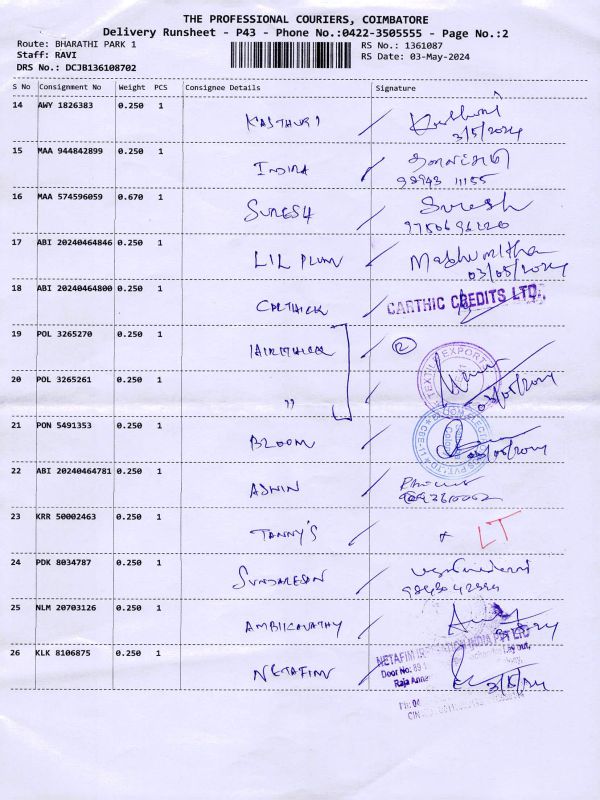 THE PROFESSIONAL COURIERS, COIMBATORE
Delivery Runsheet - P43 - Phone No.:0422-3505555 - Page No.:2
Route: BHARATHI PARK 1 RS No.: 1361087
Staff: RAVI RS Date: 03-May-2024
DRS No.: DCJB136108702
S No Consignment No Weight PCS Consignee Details Signature
14 AWY 1826383 0.250 1
KASTHURI
3/5/2024
15 MAA 944842899 0.250 1
INDIRA
98943 11155
16 MAA 574596059 0.670 1
SURESH Suresh
17 ABI 20240464846 0.250 1
LIL PLUM Madhumitha
03/05/2024
18 ABI 20240464800 0.250 1
CARTHICK CARTHIC CREDITS LTD.,
19 POL 3265270 0.250 1
2
TEXTILE EXPORTS
20 POL 3265261 0.250 1
03/05/2024
"
21 PON 5491353 0.250 1
BLOOM 03/05/2024
22 ABI 20240464781 0.250 1
ASWIN
23 KRR 50002463 0.250 1
TANNY'S LT
24 PDK 8034787 0.250 1
SUNDARESAN
25 NLM 20703126 0.250 1
AMBIKAVATHY
26 KLK 8106875 0.250 1
NETAFIM IRRIGATION INDIA PVT LTD
Door No: 89
NETAFIM Raja Anna
3/5/24